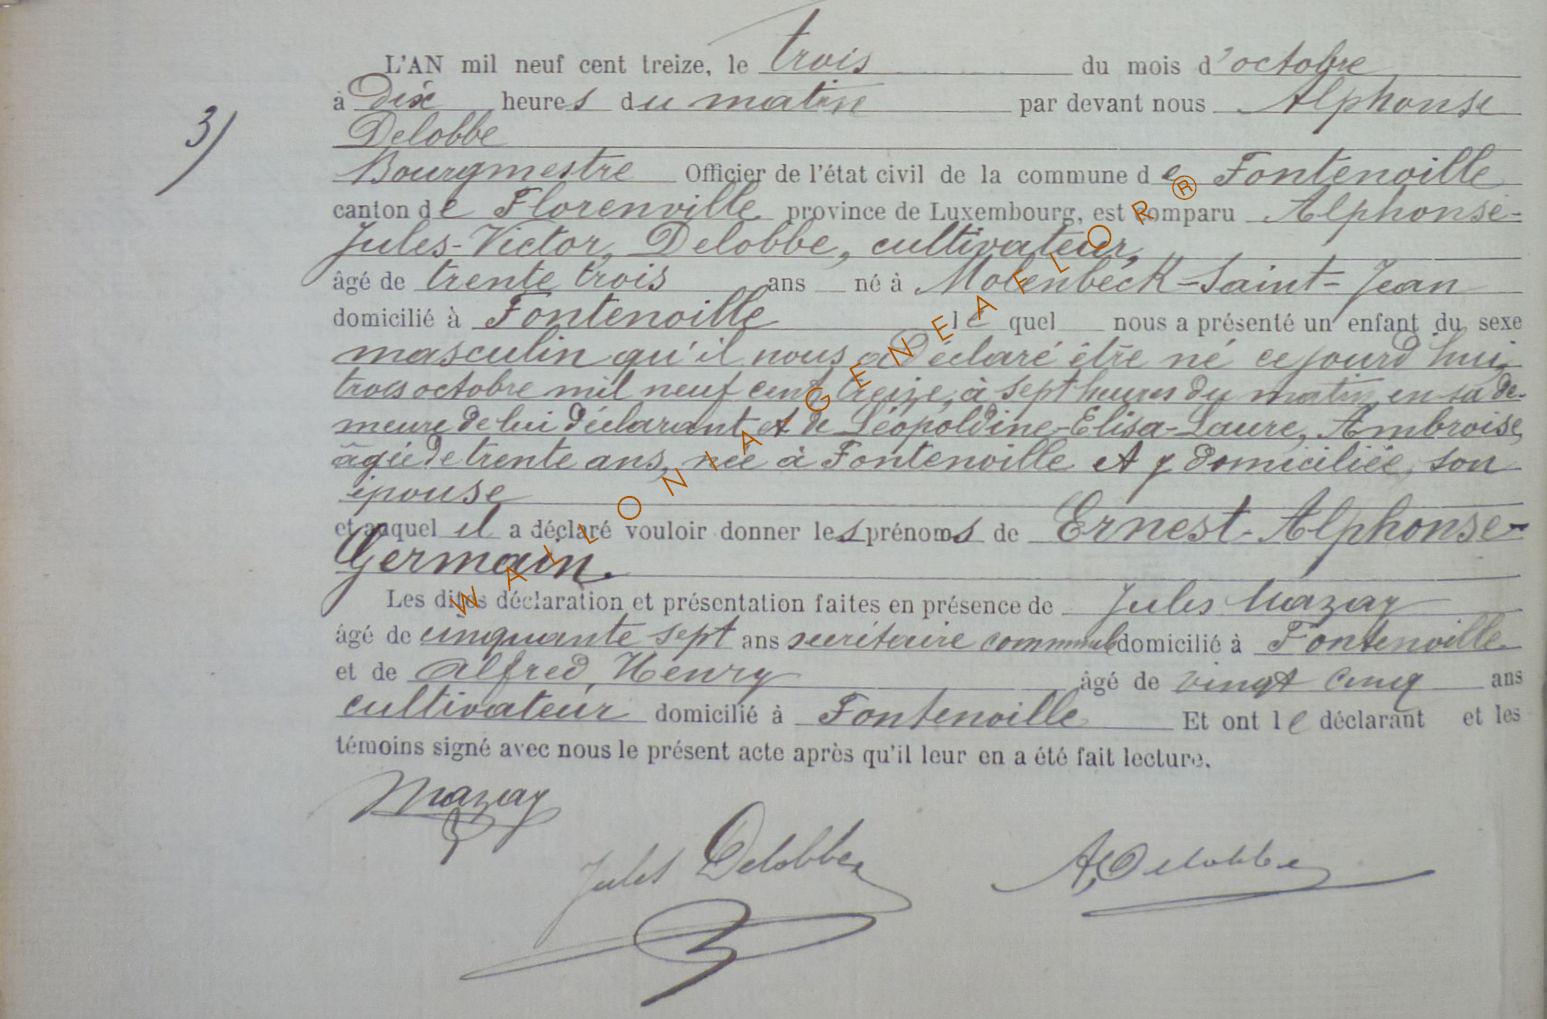 L'AN mil neuf cent treize, le trois du mois d'octobre
à Dix heures du matin par devant nous Alphonse
Delobbe
3)
Bourgmestre Officier de l'état civil de la commune de Fontenoille
canton de Florenville province de Luxembourg, est comparu Alphonse-
Jules-Victor, Delobbe, cultivateur,
âgé de trente trois ans né à Molenbéck-Saint-Jean
domicilié à Fontenoille le quel nous a présenté un enfant du sexe
masculin qu'il nous a Déclaré être né cejourd'hui
trois octobre mil neuf cent treize, à sept heures du matin, en sa de-
meure de lui déclarant et de Léopoldine-Elisa-Laure, Ambroise,
âgée de trente ans, née à Fontenoille et y domiciliée, son
épouse
et auquel il a déclaré vouloir donner les prénoms de Ernest-Alphonse-
Germain.
Les dites déclaration et présentation faites en présence de Jules Mazay
âgé de cinquante sept ans secrétaire communal domicilié à Fontenoille
et de Alfred, Henry âgé de vingt cinq ans
cultivateur domicilié à Fontenoille Et ont le déclarant et les
témoins signé avec nous le présent acte après qu'il leur en a été fait lecture.
Mazay
Jules Delobbe
A, Delobbe
WALLONIA GENEAFLOR®